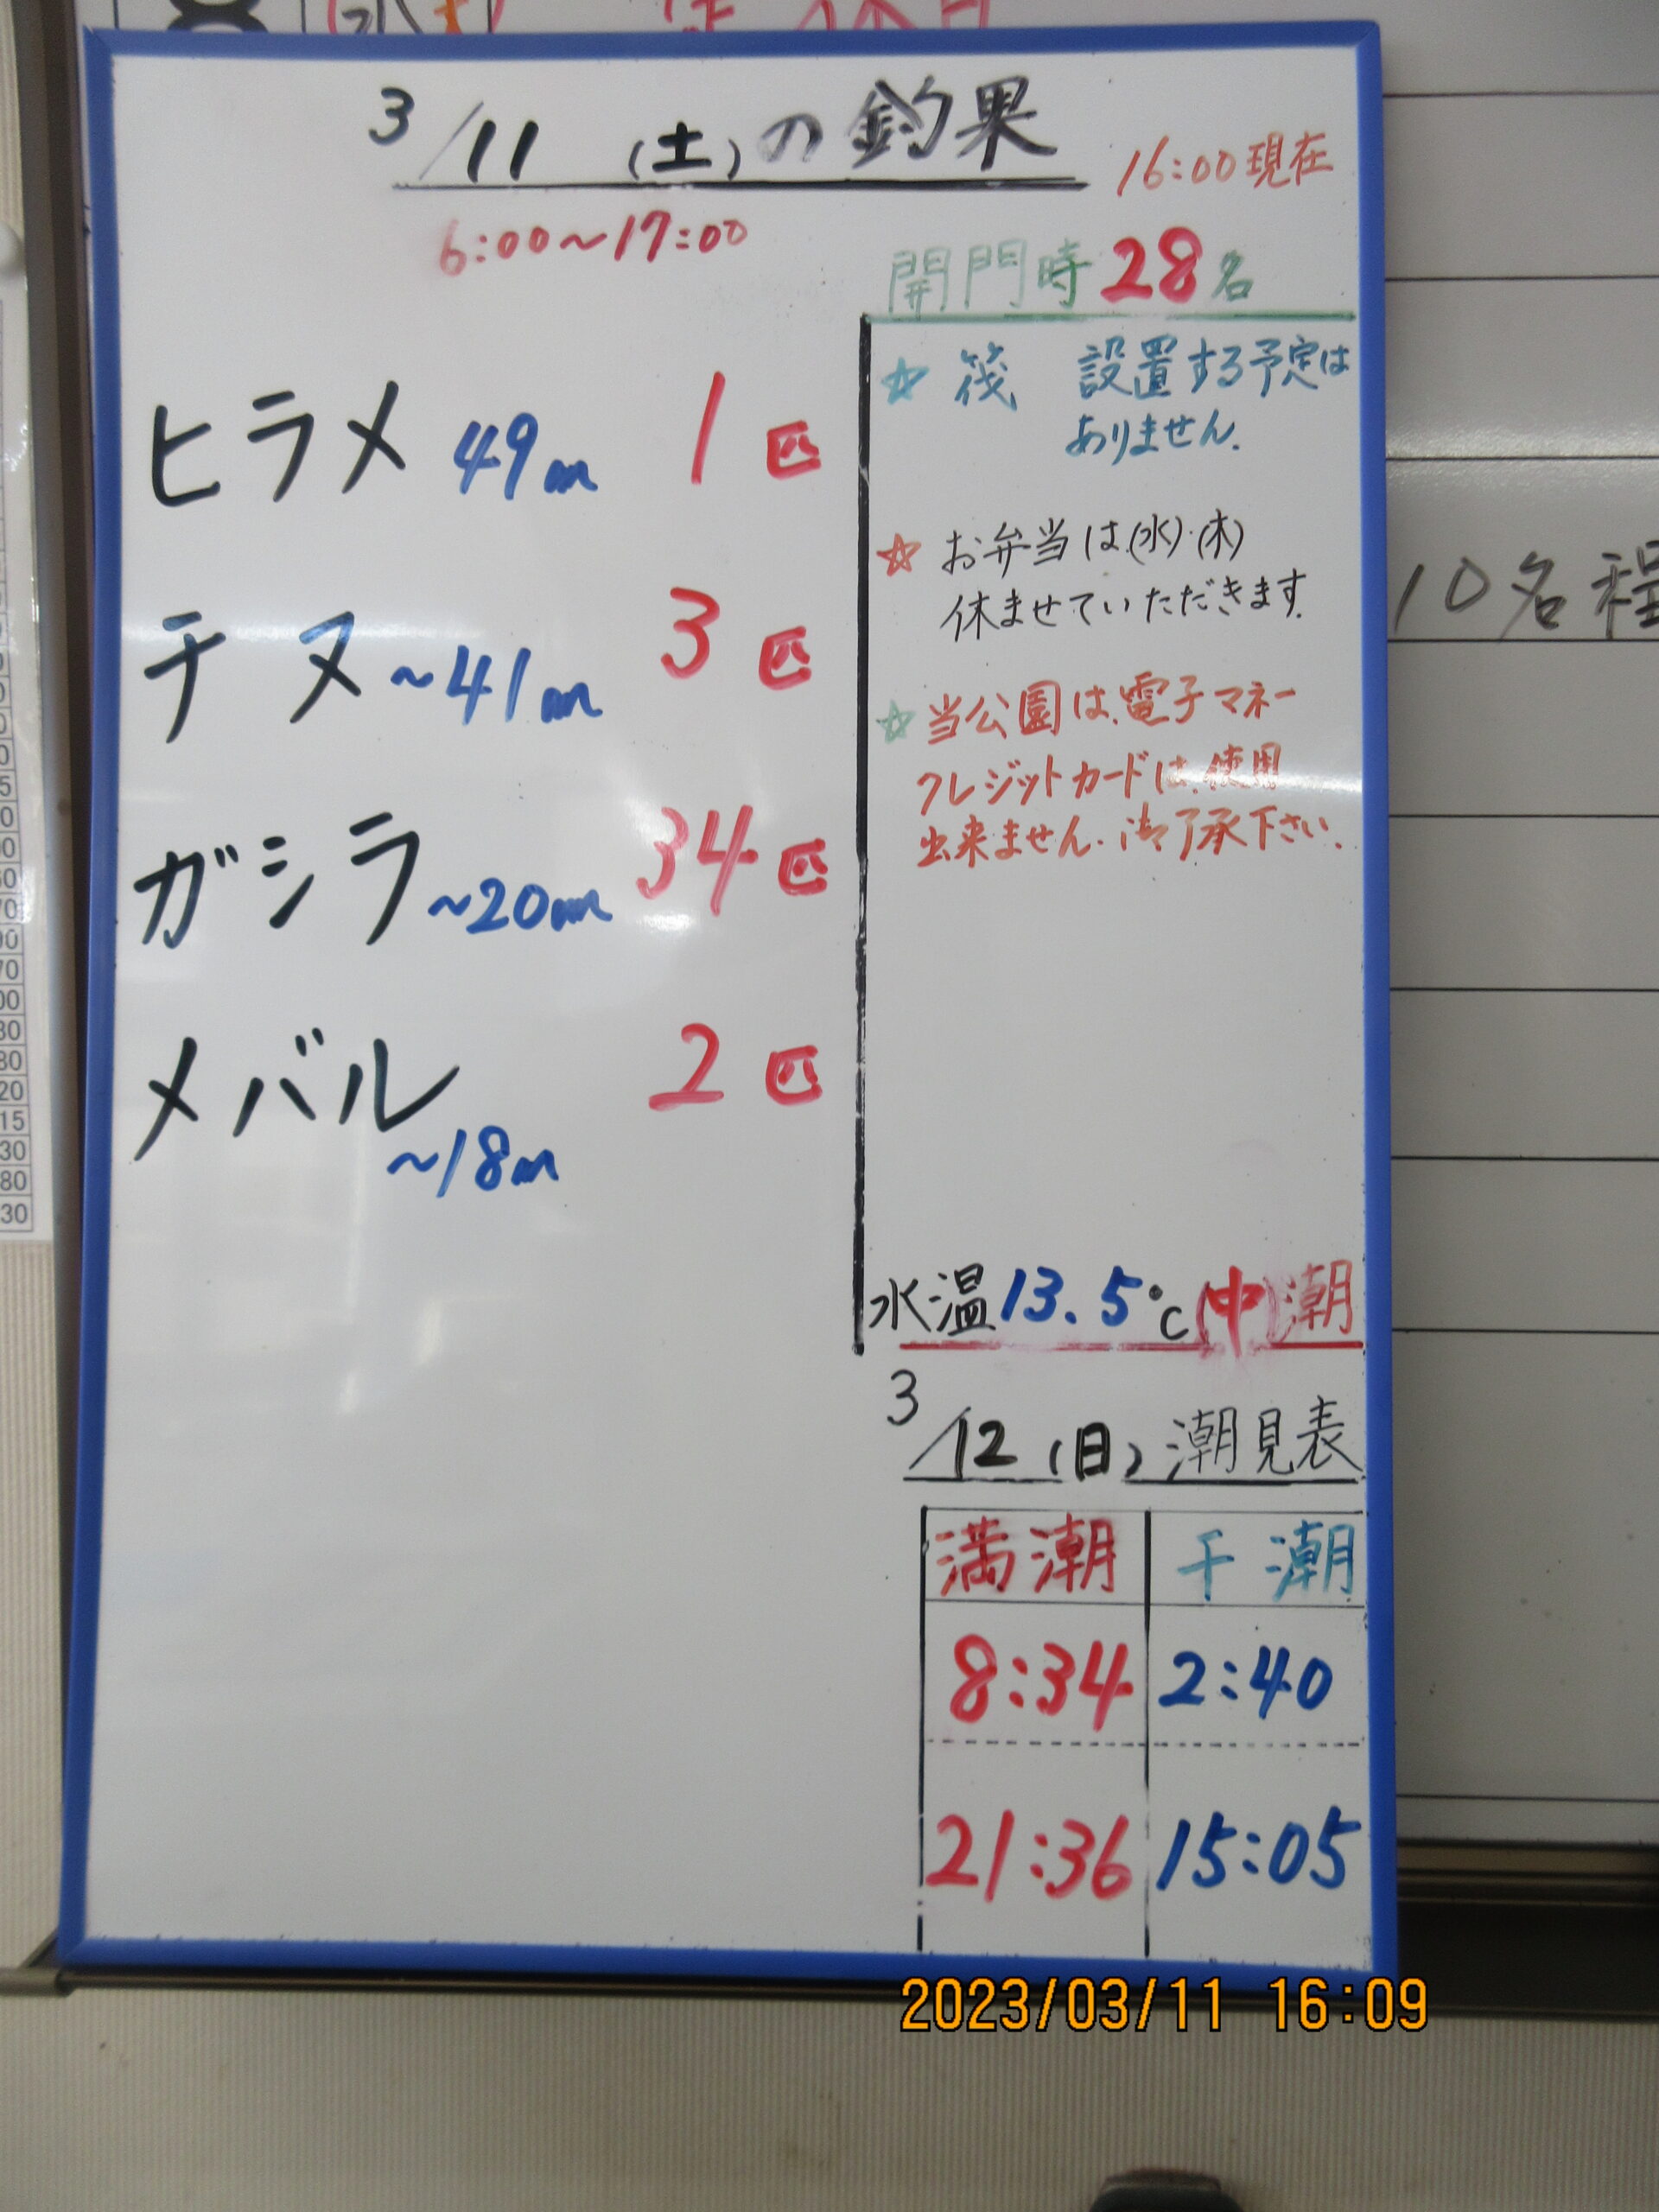 3/11 (土)の釣果
16:00現在
6:00〜17:00
開門時28名
ヒラメ 49cm 1匹
チヌ 〜41cm 3匹
ガシラ 〜20cm 34匹
メバル 〜18cm 2匹
☆ 筏 設置する予定は
ありません.
☆ お弁当は(水)・(木)
休ませていただきます.
☆ 当公園は、電子マネー
クレジットカードは、使用
出来ません. 御了承下さい.
水温13.5℃ (中)潮
3/12 (日) 潮見表
満潮 干潮
8:34 2:40
21:36 15:05
10名程
2023/03/11 16:09